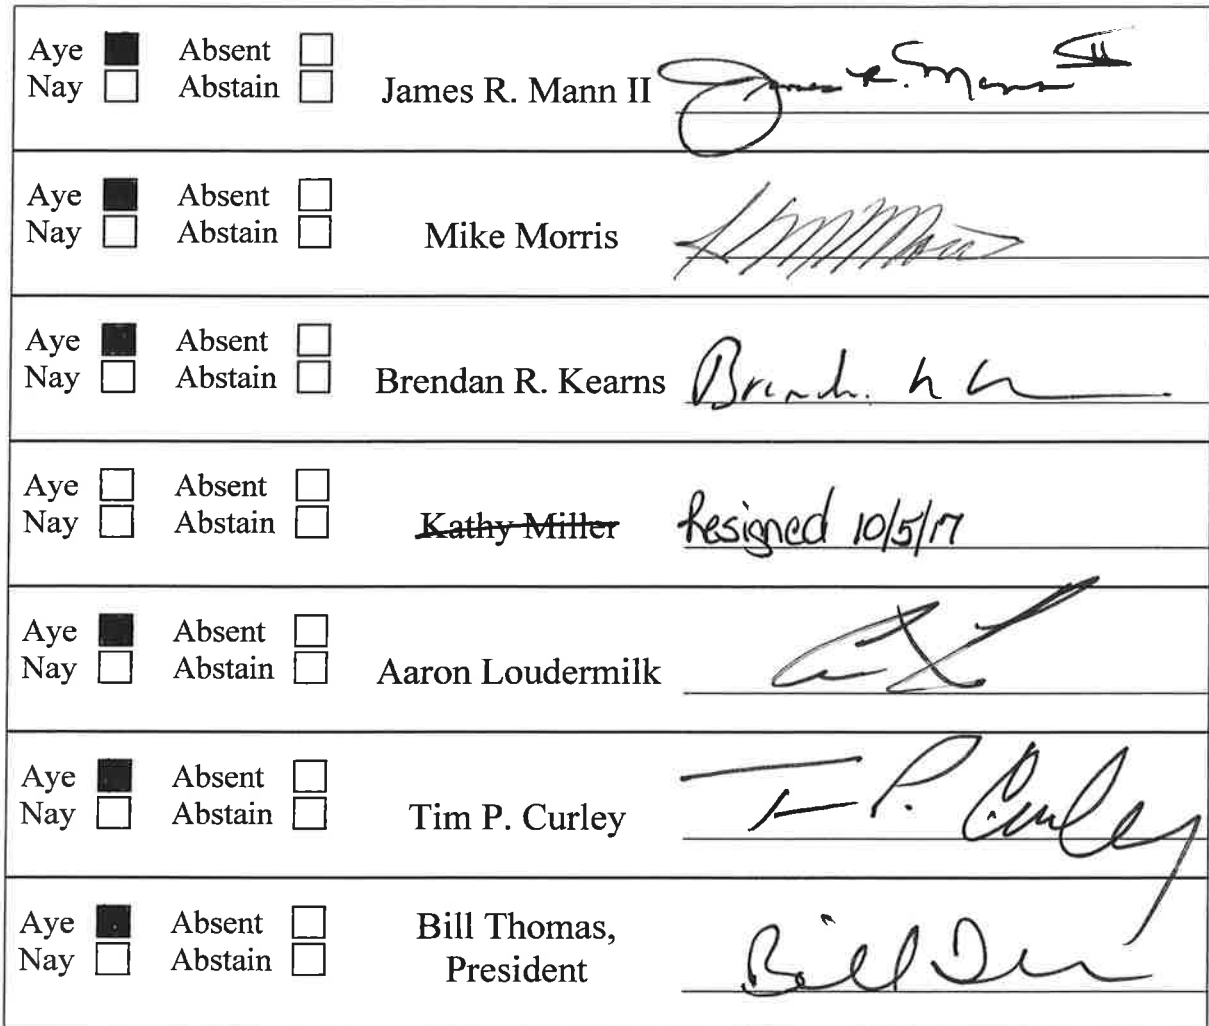 Aye ■ Absent □
Nay □ Abstain □ James R. Mann II James R. Mann II
Aye ■ Absent □
Nay □ Abstain □ Mike Morris
Aye ■ Absent □
Nay □ Abstain □ Brendan R. Kearns
Aye □ Absent □
Nay □ Abstain □ Kathy Miller Resigned 10/5/17
Aye ■ Absent □
Nay □ Abstain □ Aaron Loudermilk
Aye ■ Absent □
Nay □ Abstain □ Tim P. Curley Tim P. Curley
Aye ■ Absent □ Bill Thomas,
Nay □ Abstain □ President Bill